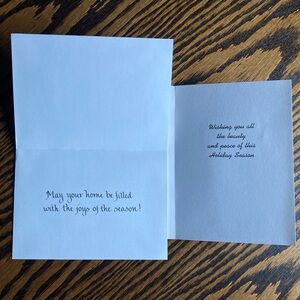 May your home be filled
with the joys of the season!
Wishing you all
the beauty
and peace of this
Holiday Season